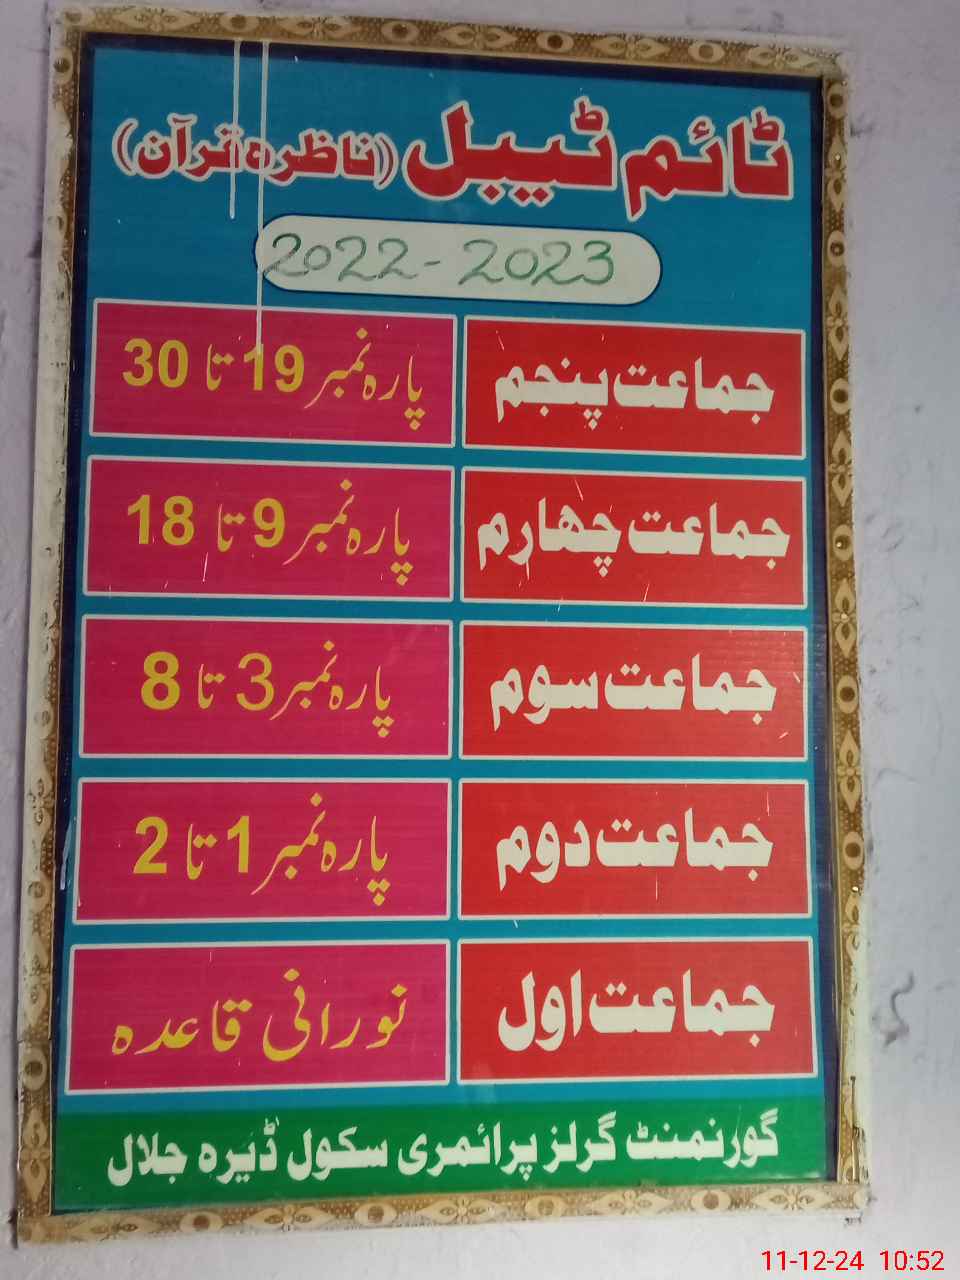 ٹائم ٹیبل (ناظرہ قرآن)
2022-2023
جماعت پنجم پارہ نمبر 19 تا 30
جماعت چہارم پارہ نمبر 9 تا 18
جماعت سوم پارہ نمبر 3 تا 8
جماعت دوم پارہ نمبر 1 تا 2
جماعت اول نورانی قاعدہ
گورنمنٹ گرلز پرائمری سکول ڈیرہ جلال
11-12-24 10:52